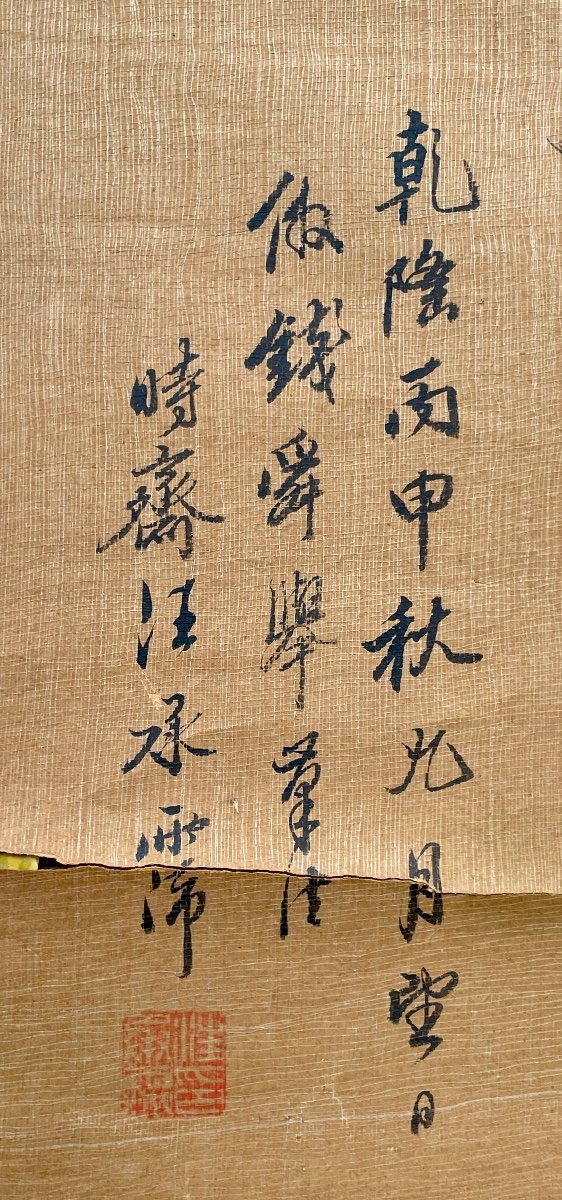 乾隆丙申秋九月望日
倣錢舜舉筆法
時齋汪承霈